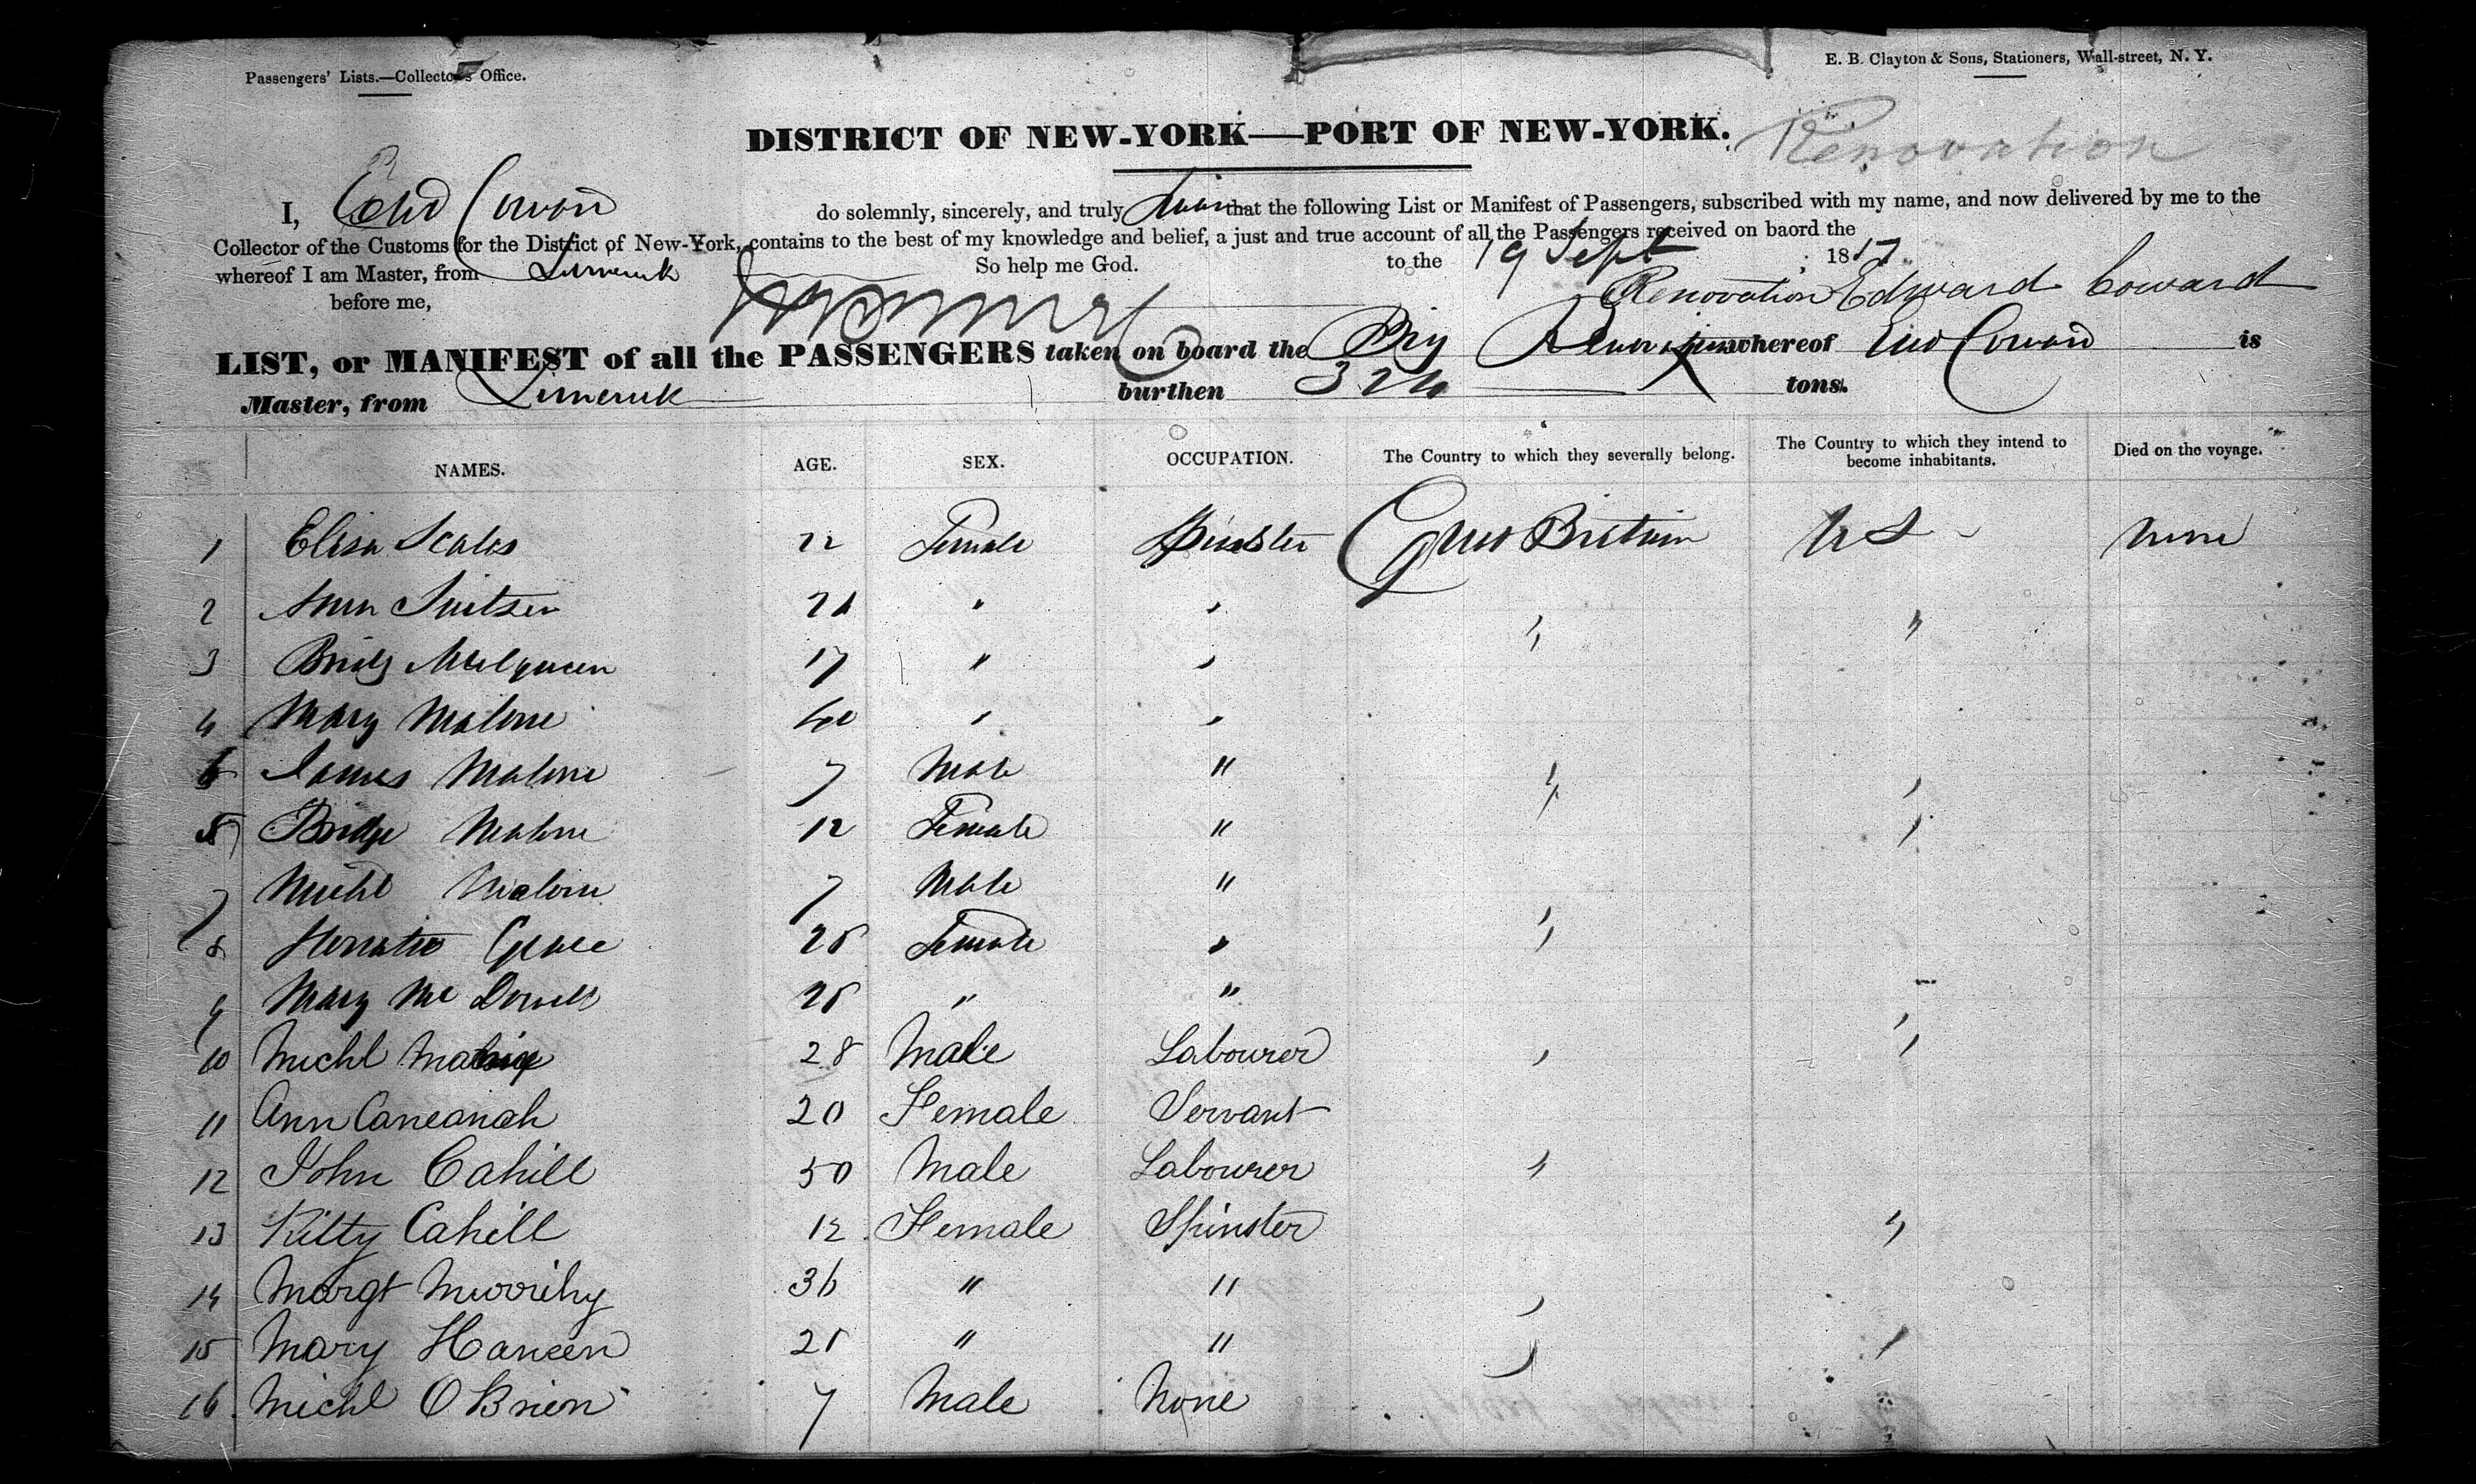 Passengers' Lists.—Collector's Office.
E. B. Clayton & Sons, Stationers, Wall-street, N. Y.
DISTRICT OF NEW-YORK—PORT OF NEW-YORK.
Renovation
I, Edwd Coward do solemnly, sincerely, and truly swear that the following List or Manifest of Passengers, subscribed with my name, and now delivered by me to the
Collector of the Customs for the District of New-York, contains to the best of my knowledge and belief, a just and true account of all the Passengers received on baord the
whereof I am Master, from Limerick So help me God. to the 19 Sept 18
before me, Renovation Edward Coward
LIST, or MANIFEST of all the PASSENGERS taken on board the Brig Renovation whereof Edwd Coward is
Master, from Limerick burthen tons.
NAMES. AGE. SEX. OCCUPATION. The Country to which they severally belong. The Country to which they intend to become inhabitants. Died on the voyage.
1 Elisa Scales 22 Female Spinster Great Britain U S None
2 Ann " "
3 17 " "
4 Mary Malone 40 " "
6 James Malone 7 Male "
5 Bridge Malone 12 Female "
7 Michl Malone 7 Male "
8 Grace Female "
9 Mary Mc " "
10 Michl 28 Male Labourer
11 Ann Caneanah 20 Female Servant
12 John Cahill 50 Male Labourer
13 Kitty Cahill 12 Female Spinster
14 Margt 36 " "
15 Mary Haneen " "
16 Michl O Brien 7 Male None